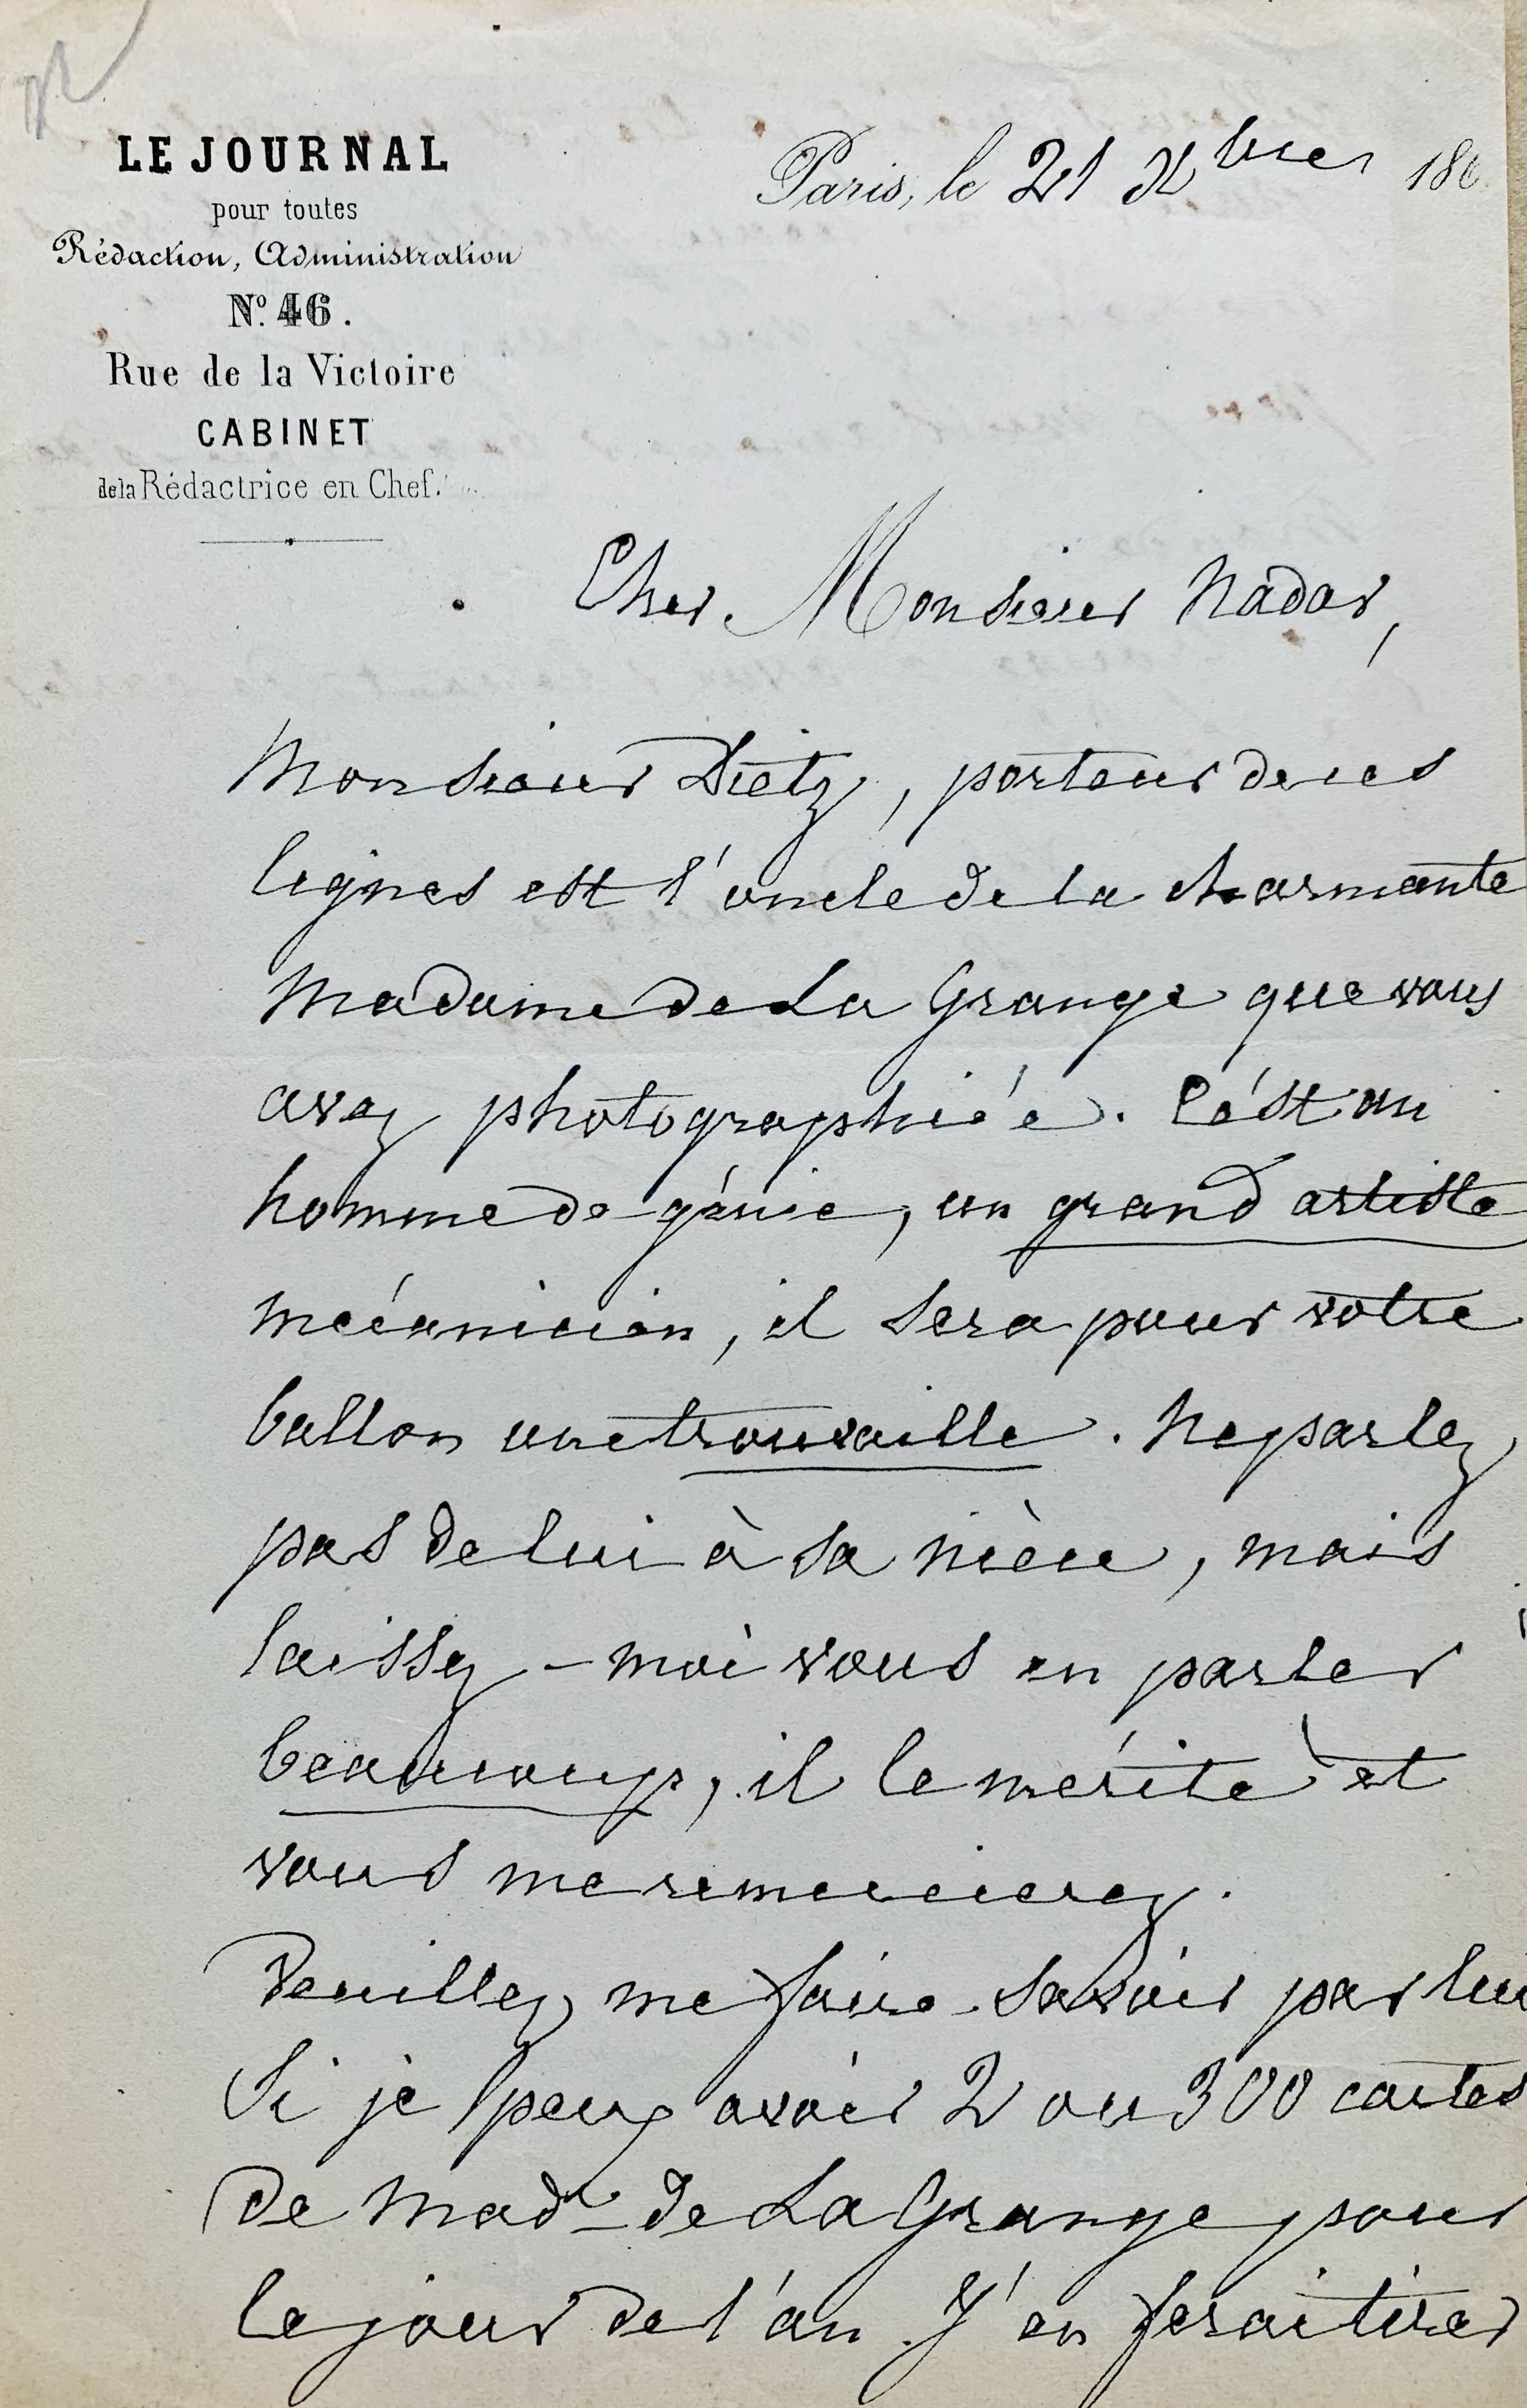 LE JOURNAL
pour toutes
Rédaction, Administration
Nº. 46.
Rue de la Victoire
CABINET
de la Rédactrice en Chef.
Paris, le 21 Xbre 186
Cher Monsieur Nadar,
Monsieur Dietz, porteur de ces
lignes est l'oncle de la charmante
Madame de La Grange que vous
avez photographiée. C'est un
homme de génie, un grand artiste
mécanicien, il sera pour votre
ballon une trouvaille. Ne parlez
pas de lui à sa nièce, mais
laissez-moi vous en parler
beaucoup, il le mérite et
vous me remercierez.
Veuillez me faire savoir par lui
si je peux avoir 2 ou 300 cartes
de Mad de La Grange pour
le jour de l'an. J'en ferai tirer